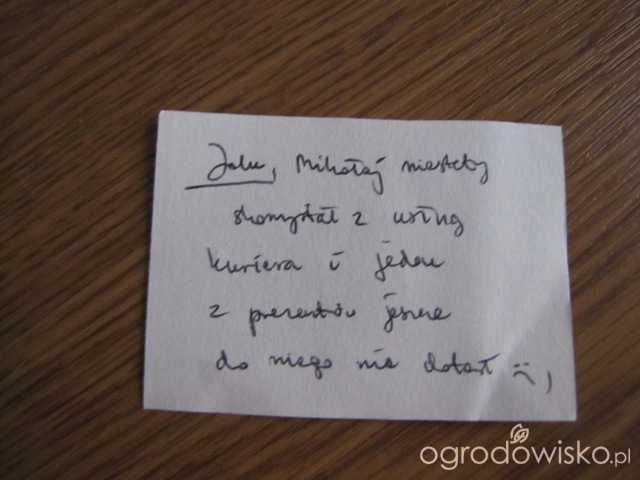 Jolu, Mikołaj niestety
skorzystał z usług
kuriera i jeden
z prezentów jeszcze
do niego nie dotarł :(,
ogrodowisko.pl